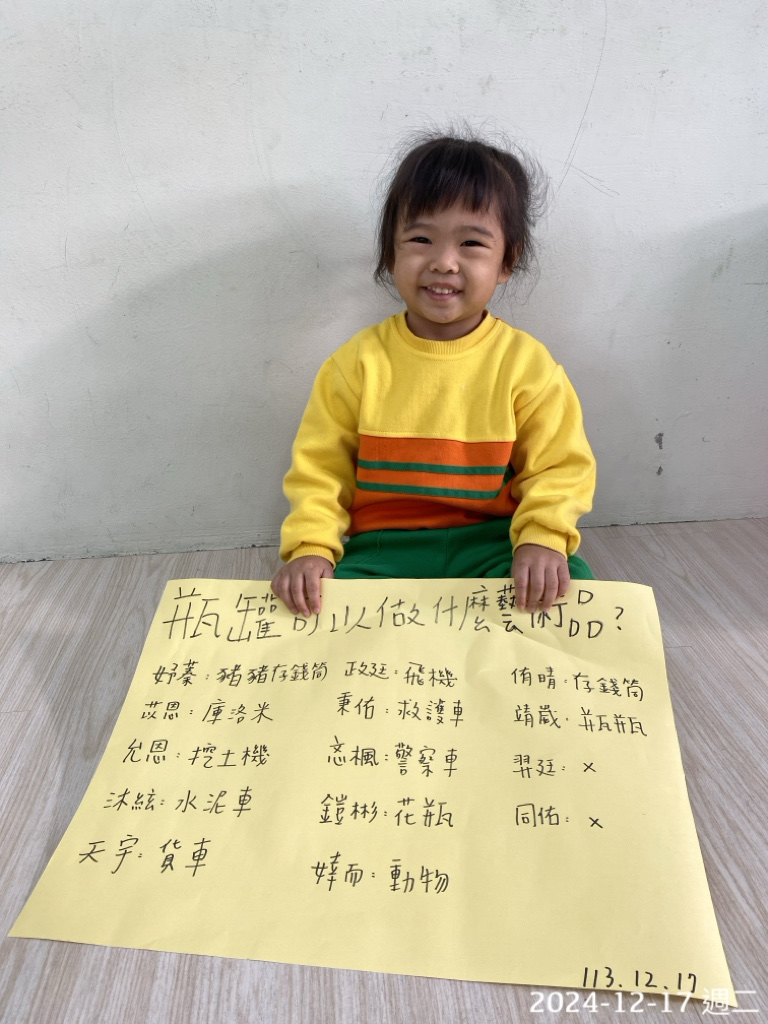 瓶罐可以做什麼藝術品?
妤蓁：豬豬存錢筒 政廷：飛機 侑晴：存錢筒
苡恩：庫洛米 秉佑：救護車 靖葳：瓶瓶
允恩：挖土機 忞楓：警察車 羿廷：×
沐絃：水泥車 鎧彬：花瓶 同佑：×
天宇：貨車 婞而：動物
113.12.17
2024-12-17 週二